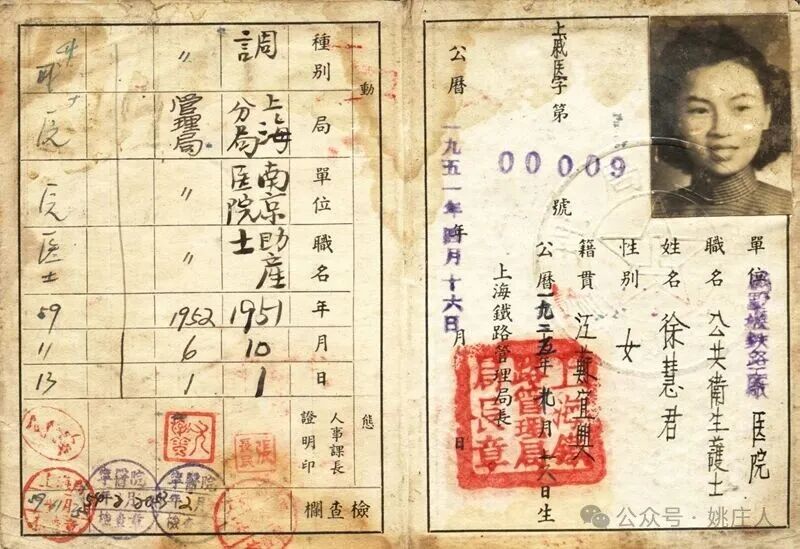 單位 医院
職名 公共衛生護士
姓名 徐慧君
性別 女
籍貫 江蘇宜興
公曆一九二五年九月十六日生
上海鐵路管理局長
上海鐵路管理局局長章
上 医字第 00009 號
公曆 一九五一年四月十六日
年 月 日
動
態
種別
局
單位
職名
年
月
日
人事課長證明印
檢查欄
調
上海分局
南京医院
助産士
1951
10
1
〃
管理局
〃
〃
1952
6
1
医院
医士
59
11
13
寧醫院
檢查章
寧醫院
2月
檢查
公众号·姚庄人